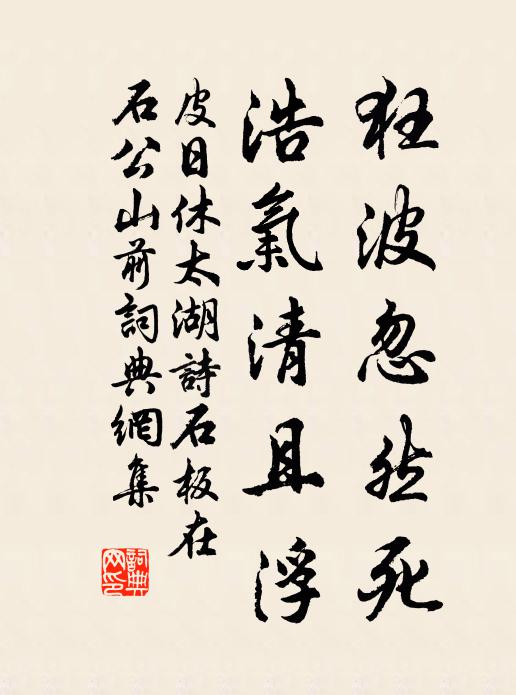 狂波忽然死
浩氣清且浮
皮日休太湖詩石板在
石公山前詞典網集
詞典
网印